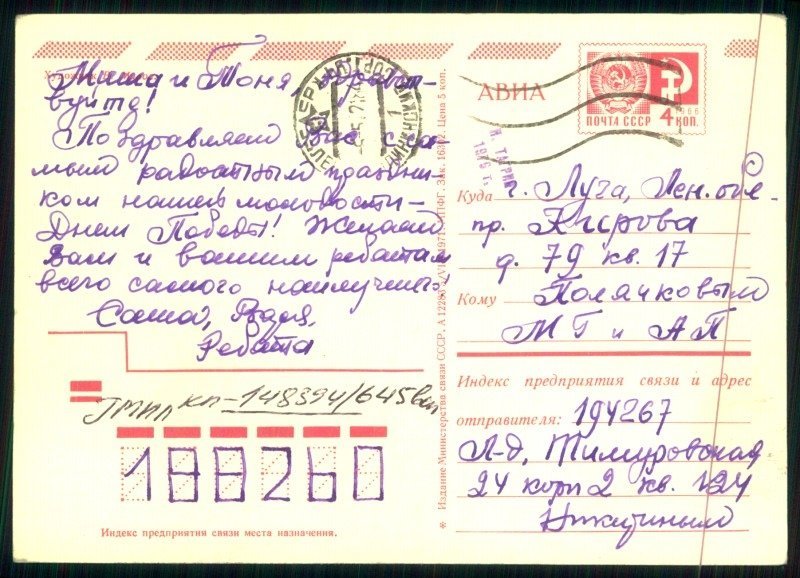 Миша и Тоня, здравст-
вуйте!
Поздравляем вас с са-
мым радостным праздни-
ком нашей молодости -
Днем Победы! Желаем
Вам и вашим ребятам
всего самого наилучшего!
Саша, Валя,
Ребята
КП-148394/645
188260
Индекс предприятия связи места назначения.
* Издание Министерства связи СССР.
Цена 5 коп.
АВИА
ПОЧТА СССР 4 КОП.
1966
Куда г. Луга, Лен. обл.
пр. Кирова
д. 79 кв. 17
Кому Полячковым
МГ и АП
Индекс предприятия связи и адрес
отправителя: 194267
Л-д, Тимуровская
24 корп 2 кв. 124
Никитиным